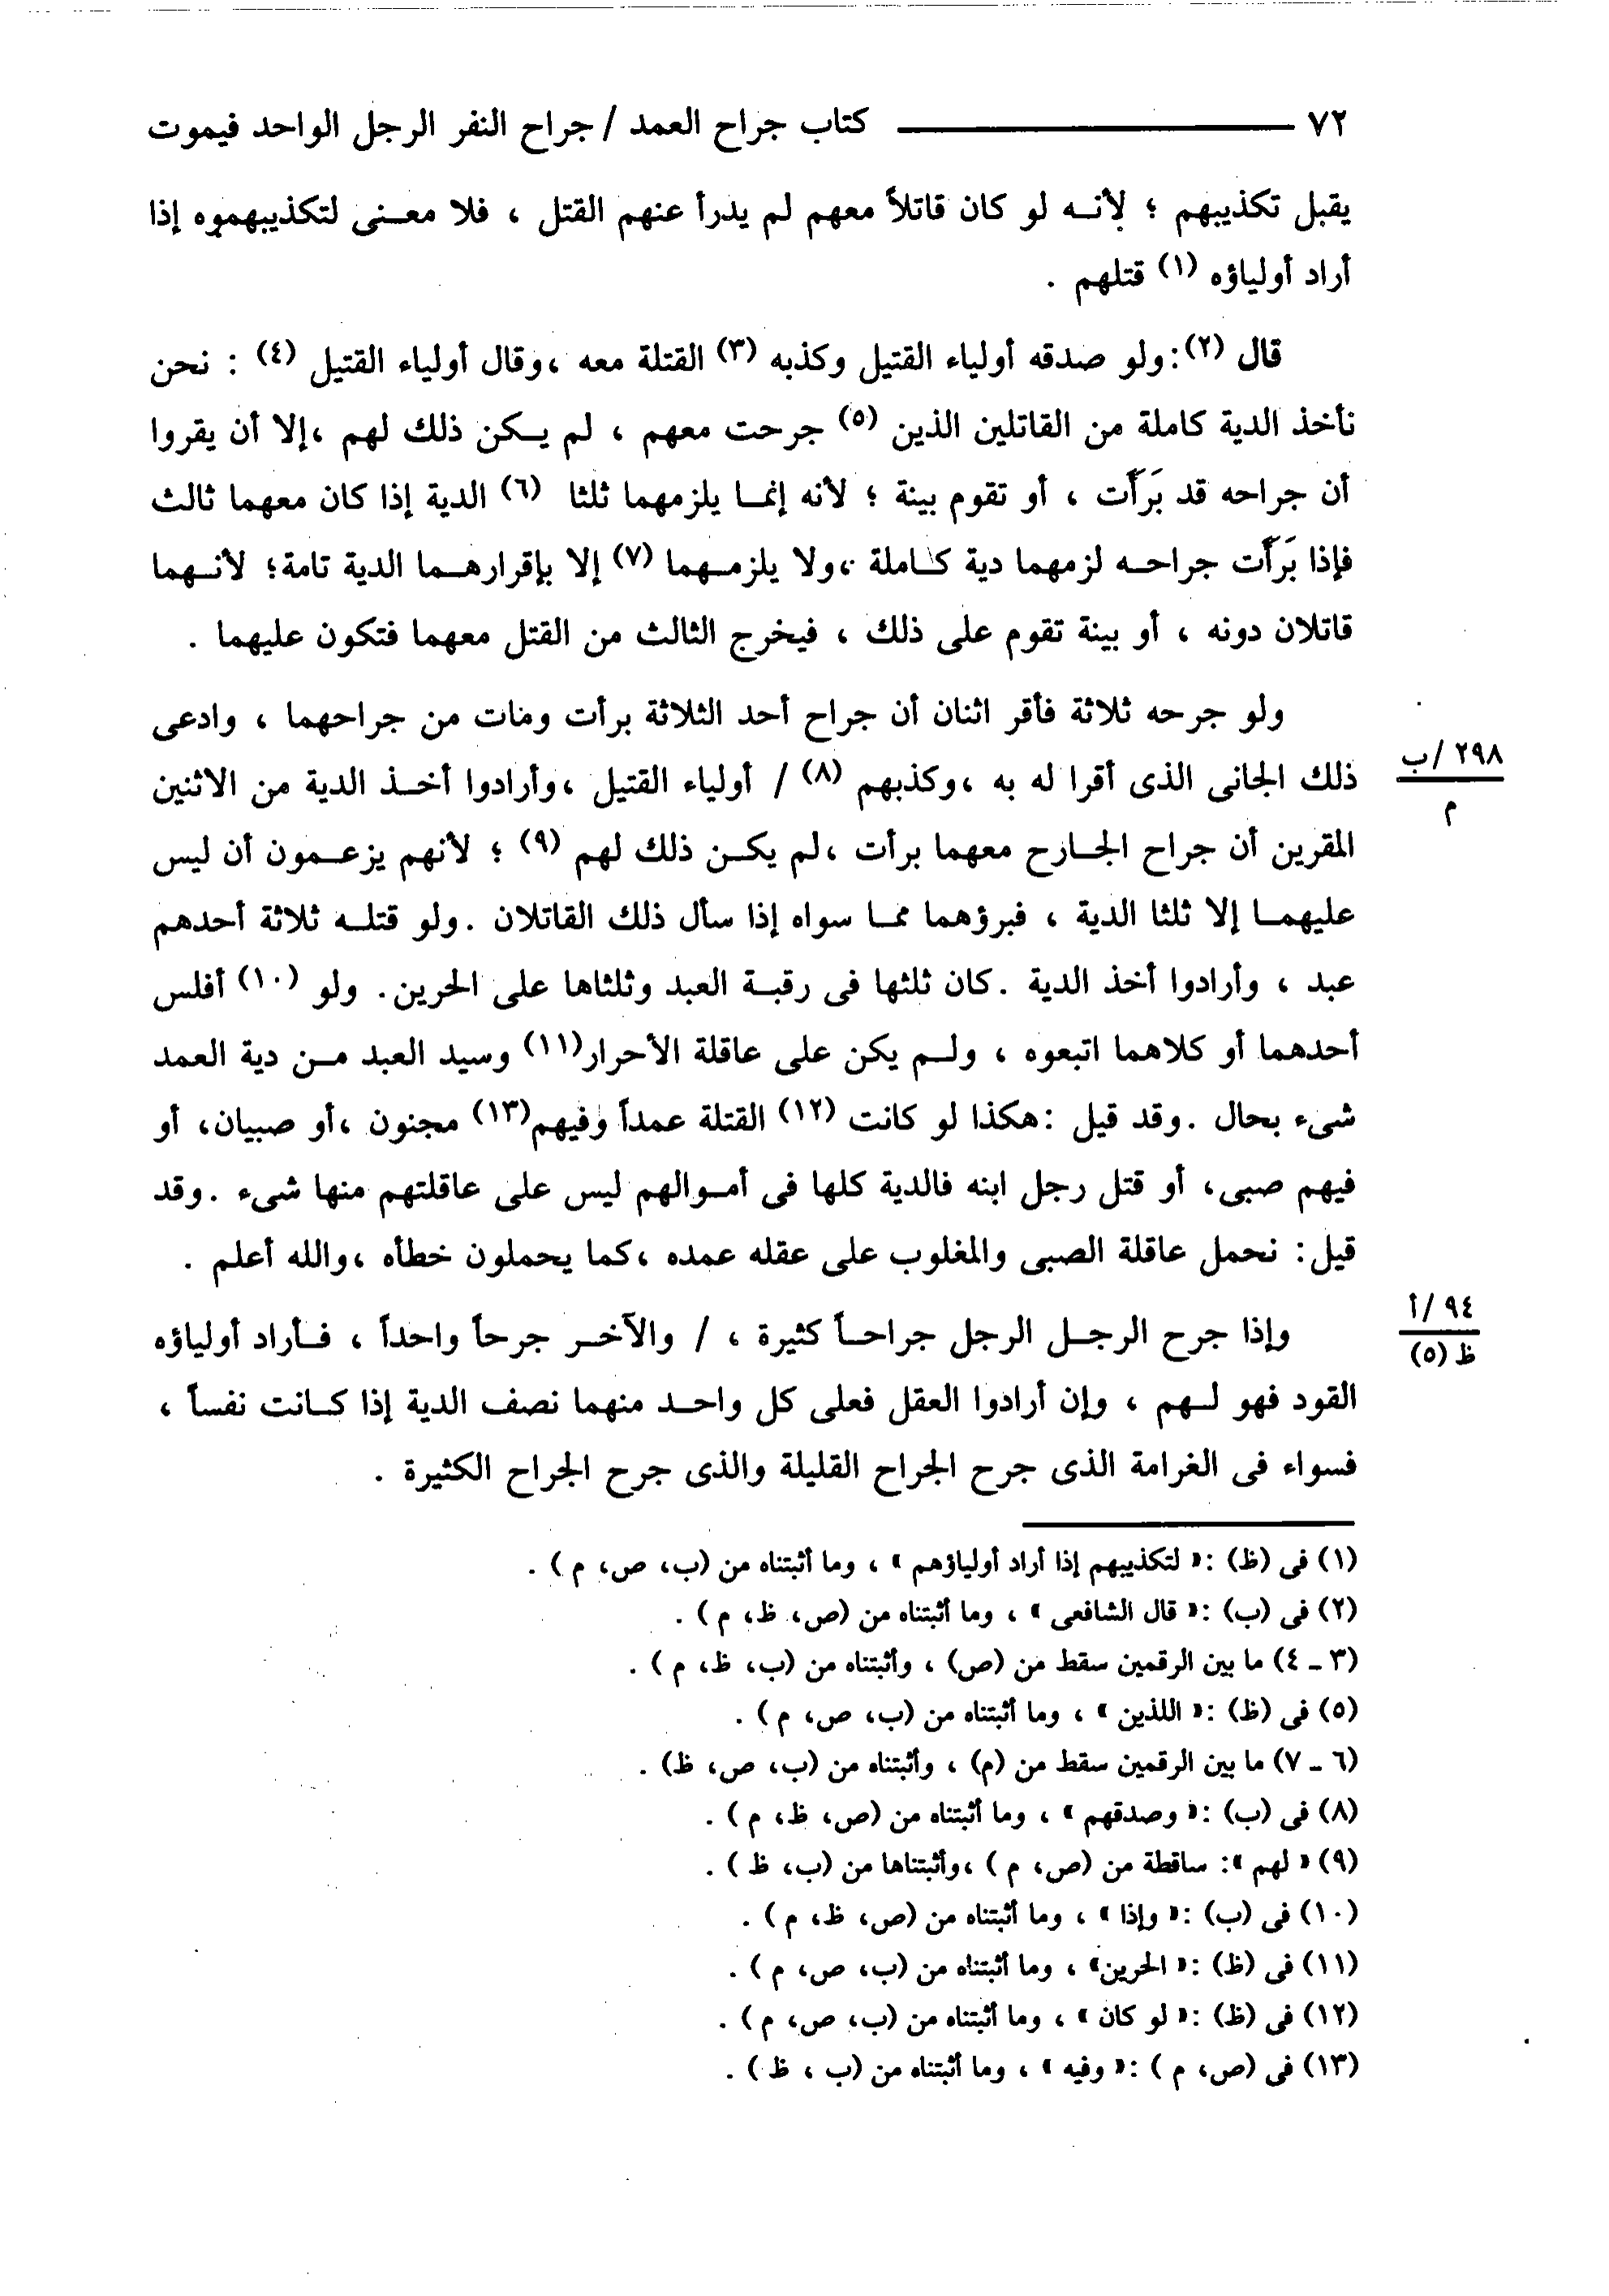 ٧٢ ــــــــــــ كتاب جراح العمد / جراح النفر الرجل الواحد فيموت
يقبل تكذيبهم ؛ لأنه لو كان قاتلاً معهم لم يدرأ عنهم القتل ، فلا معنى لتكذيبهموه إذا
أراد أولياؤه (١) قتلهم .
قال (٢): ولو صدقه أولياء القتيل وكذبه (٣) القتلة معه ، وقال أولياء القتيل (٤) : نحن
نأخذ الدية كاملة من القاتلين الذين (٥) جرحت معهم ، لم يكن ذلك لهم ، إلا أن يقروا
أن جراحه قد بَرَأَت ، أو تقوم بينة ؛ لأنه إنما يلزمهما ثلثا (٦) الدية إذا كان معهما ثالث
فإذا بَرَأَت جراحه لزمهما دية كاملة ، ولا يلزمهما (٧) إلا بإقرارهما الدية تامة؛ لأنهما
قاتلان دونه ، أو بينة تقوم على ذلك ، فيخرج الثالث من القتل معهما فتكون عليهما .
ولو جرحه ثلاثة فأقر اثنان أن جراح أحد الثلاثة برأت ومات من جراحهما ، وادعى
ذلك الجانى الذى أقرا له به ، وكذبهم (٨) / أولياء القتيل ، وأرادوا أخذ الدية من الاثنين
٢٩٨/ ب
م
المقرين أن جراح الجارح معهما برأت ، لم يكن ذلك لهم (٩) ؛ لأنهم يزعمون أن ليس
عليهما إلا ثلثا الدية ، فبرؤهما مما سواه إذا سأل ذلك القاتلان . ولو قتله ثلاثة أحدهم
عبد ، وأرادوا أخذ الدية . كان ثلثها فى رقبة العبد وثلثاها على الحرين. ولو (١٠) أفلس
أحدهما أو كلاهما اتبعوه ، ولم يكن على عاقلة الأحرار(١١) وسيد العبد من دية العمد
شىء بحال . وقد قيل : هكذا لو كانت (١٢) القتلة عمداً وفيهم(١٣) مجنون ، أو صبيان، أو
فيهم صبى، أو قتل رجل ابنه فالدية كلها فى أموالهم ليس على عاقلتهم منها شىء . وقد
قيل : نحمل عاقلة الصبى والمغلوب على عقله عمده ، كما يحملون خطأه ، والله أعلم .
وإذا جرح الرجل الرجل جراحاً كثيرة ، / والآخر جرحاً واحداً ، فأراد أولياؤه
٩٤/ أ
ظ (٥)
القود فهو لهم ، وإن أرادوا العقل فعلى كل واحد منهما نصف الدية إذا كانت نفساً ،
فسواء فى الغرامة الذى جرح الجراح القليلة والذى جرح الجراح الكثيرة .
(١) فى (ظ) : « لتكذيبهم إذا أراد أولياؤهم » ، وما أثبتناه من (ب، ص، م ) .
(٢) فى (ب) : « قال الشافعى » ، وما أثبتناه من (ص، ظ، م ) .
(٣ ـ ٤) ما بين الرقمين سقط من (ص) ، وأثبتناه من (ب، ظ، م ) .
(٥) فى (ظ) : « اللذين » ، وما أثبتناه من (ب، ص، م ) .
(٦ ـ ٧) ما بين الرقمين سقط من (م) ، وأثبتناه من (ب، ص، ظ) .
(٨) فى (ب) : « وصدقهم » ، وما أثبتناه من (ص، ظ، م ) .
(٩) « لهم »: ساقطة من (ص، م ) ، وأثبتناها من (ب، ظ ) .
(١٠) فى (ب) : « وإذا » ، وما أثبتناه من (ص، ظ، م ) .
(١١) فى (ظ) : « الحرين» ، وما أثبتناه من (ب، ص، م ) .
(١٢) فى (ظ) : « لو كان » ، وما أثبتناه من (ب، ص، م ) .
(١٣) فى (ص، م ) : « وفيه » ، وما أثبتناه من (ب ، ظ ) .